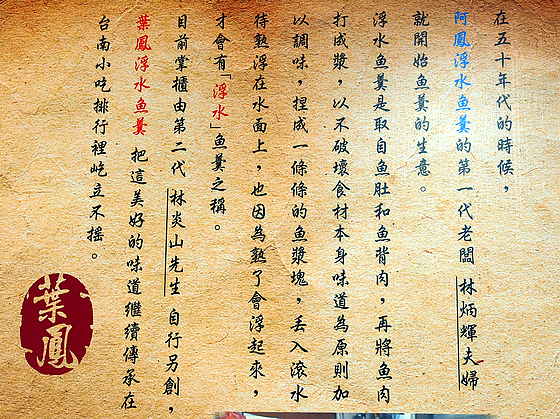 在五十年代的時候，
阿鳳浮水魚羹的第一代老闆 林炳輝夫婦
就開始魚羹的生意。
浮水魚羹是取自魚肚和魚背肉，再將魚肉
打成漿，以不破壞食材本身味道為原則加
以調味，捏成一條條的魚漿塊，丟入滾水
待熟浮在水面上，也因為熟了會浮起來，
才會有「浮水」魚羹之稱。
目前掌櫃由第二代 林炎山先生 自行另創，
葉鳳浮水魚羹 把這美好的味道繼續傳承在
台南小吃排行裡屹立不搖。
葉鳳